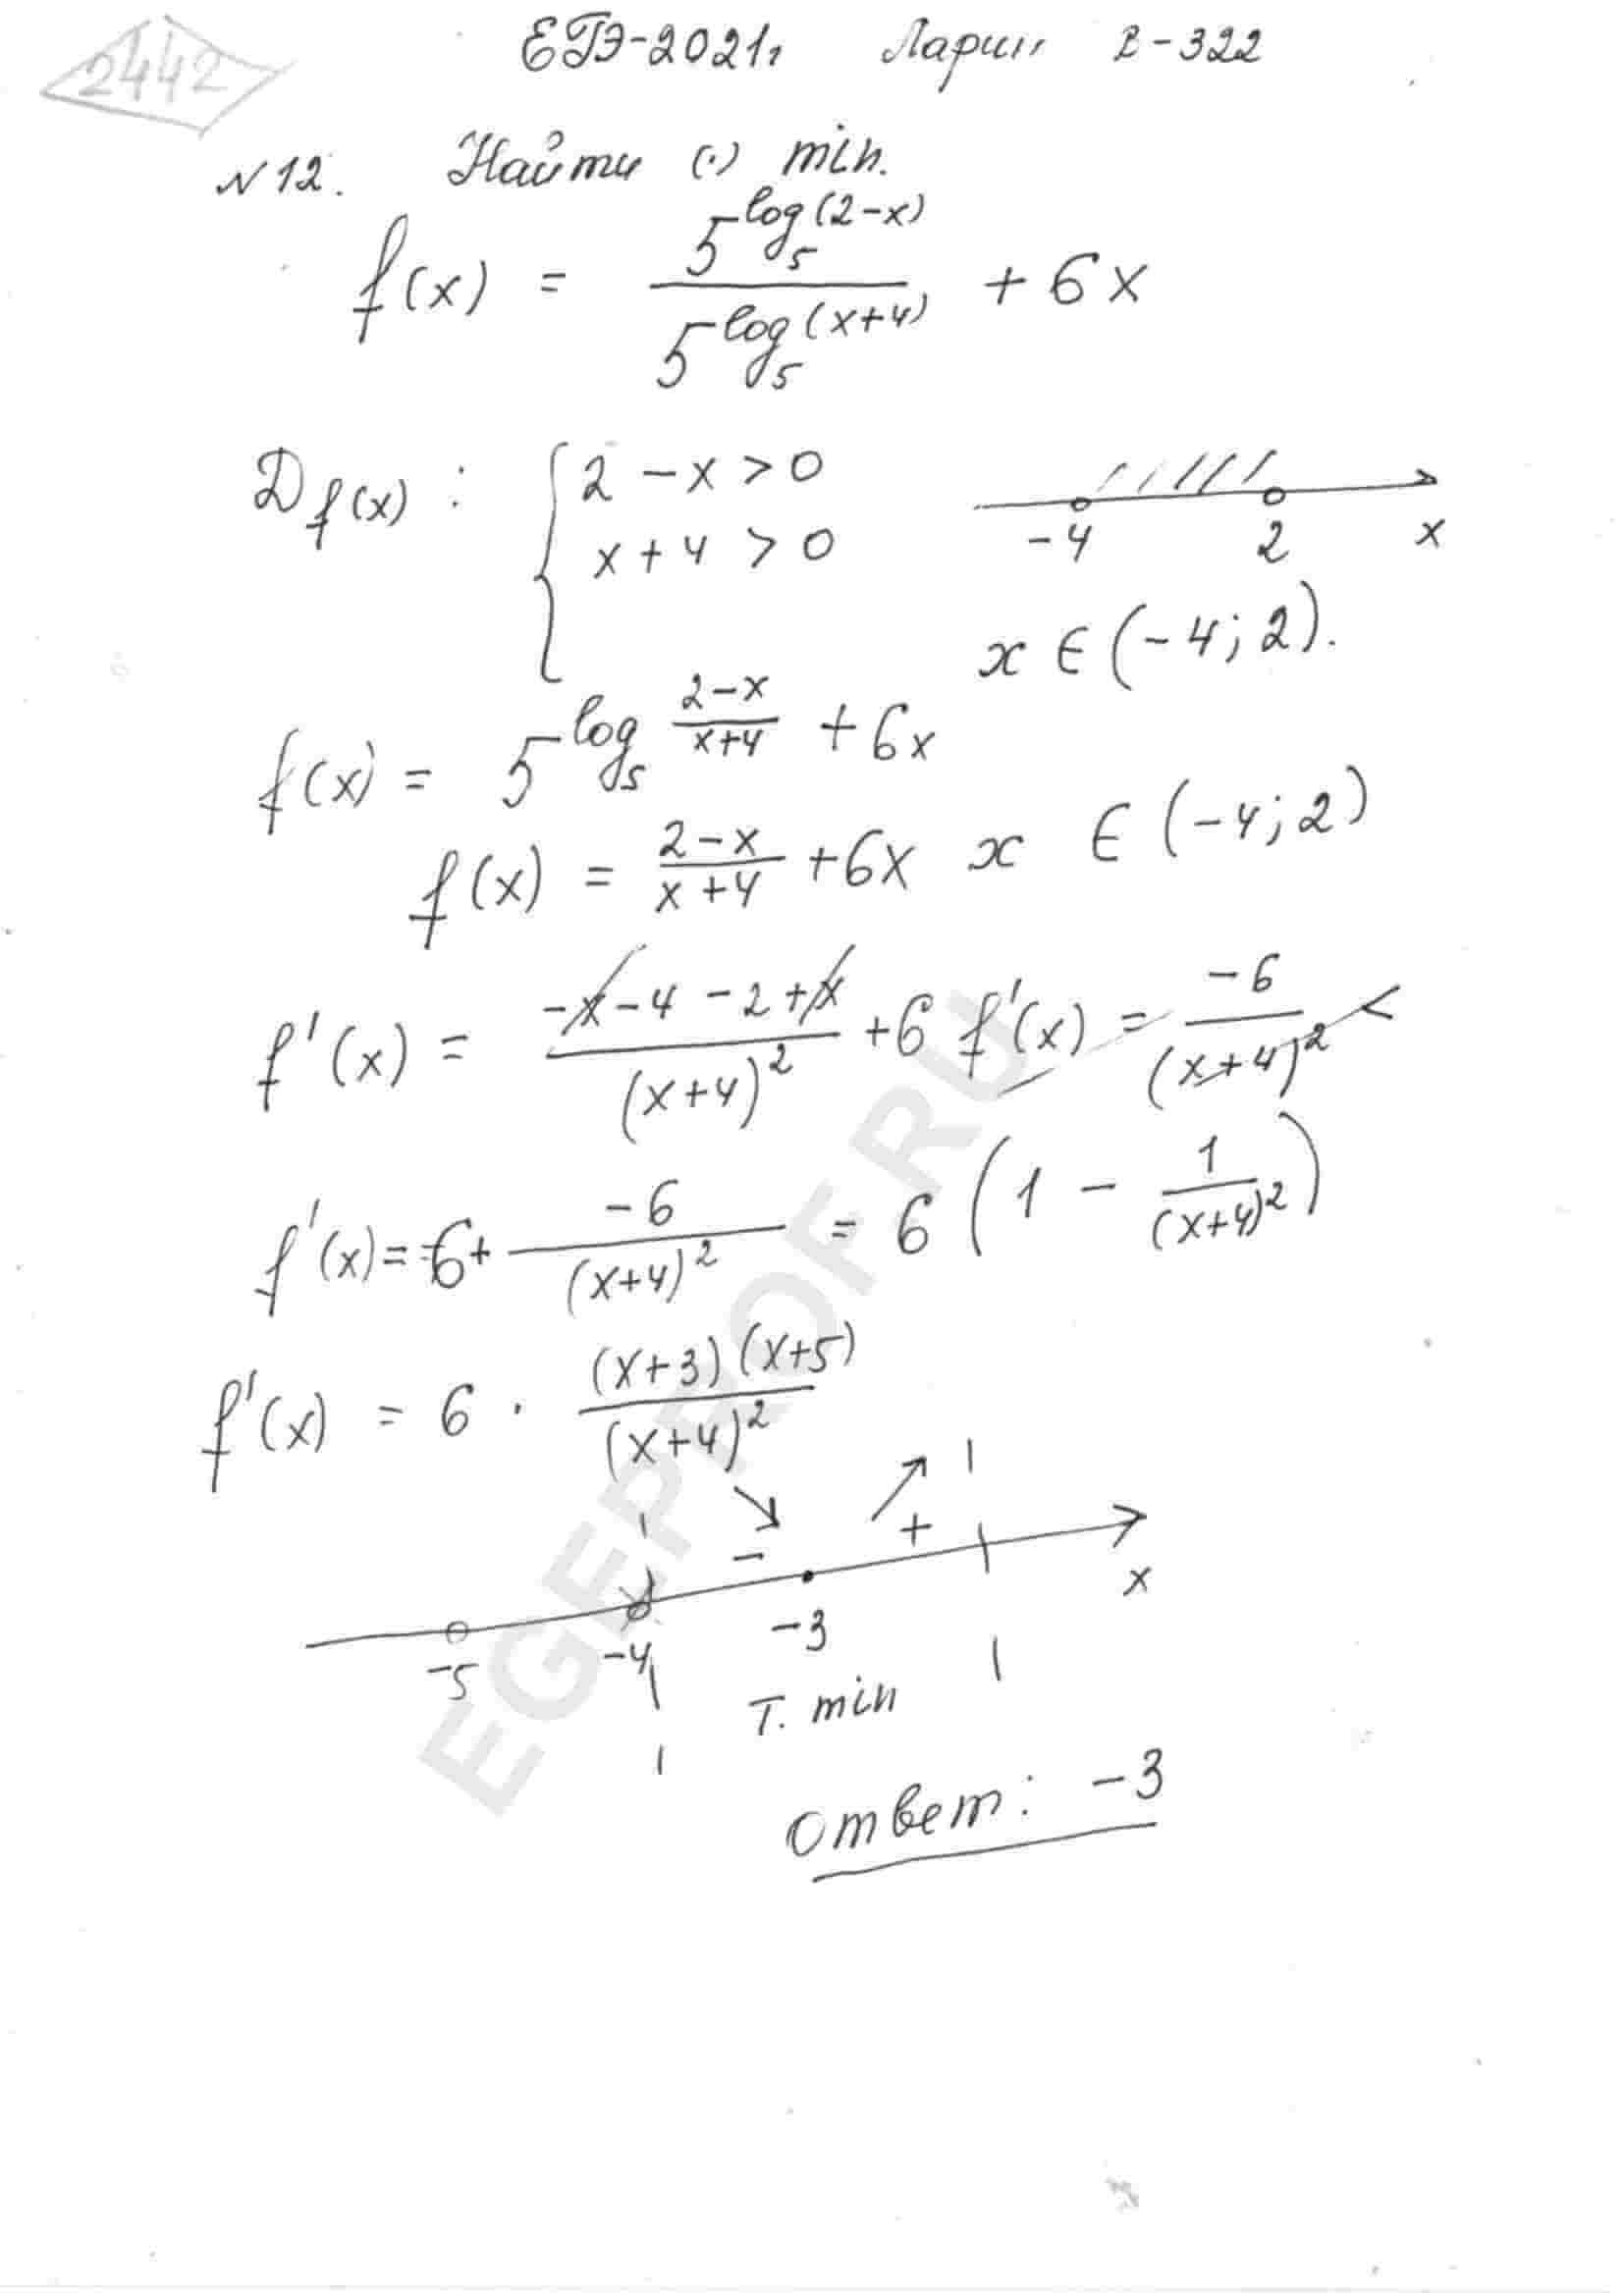 2442
ЕГЭ-2021, Ларин В-322
N12. Найти (·) min.
f(x) = 5^{log_5(2-x)} / 5^{log_5(x+4)} + 6x
D_{f(x)} : { 2-x>0
x+4>0
-4 2 x
x ∈ (-4; 2).
f(x) = 5^{log_5 (2-x)/(x+4)} + 6x
f(x) = (2-x)/(x+4) + 6x x ∈ (-4; 2)
f'(x) = (-x-4-2+x)/(x+4)^2 + 6 f'(x) = -6/(x+4)^2 <
f'(x) = 6 + -6/(x+4)^2 = 6 (1 - 1/(x+4)^2)
f'(x) = 6 · (x+3)(x+5)/(x+4)^2
- +
-5 -4 -3 x
т. min
Ответ: -3
EGEPROF.RU